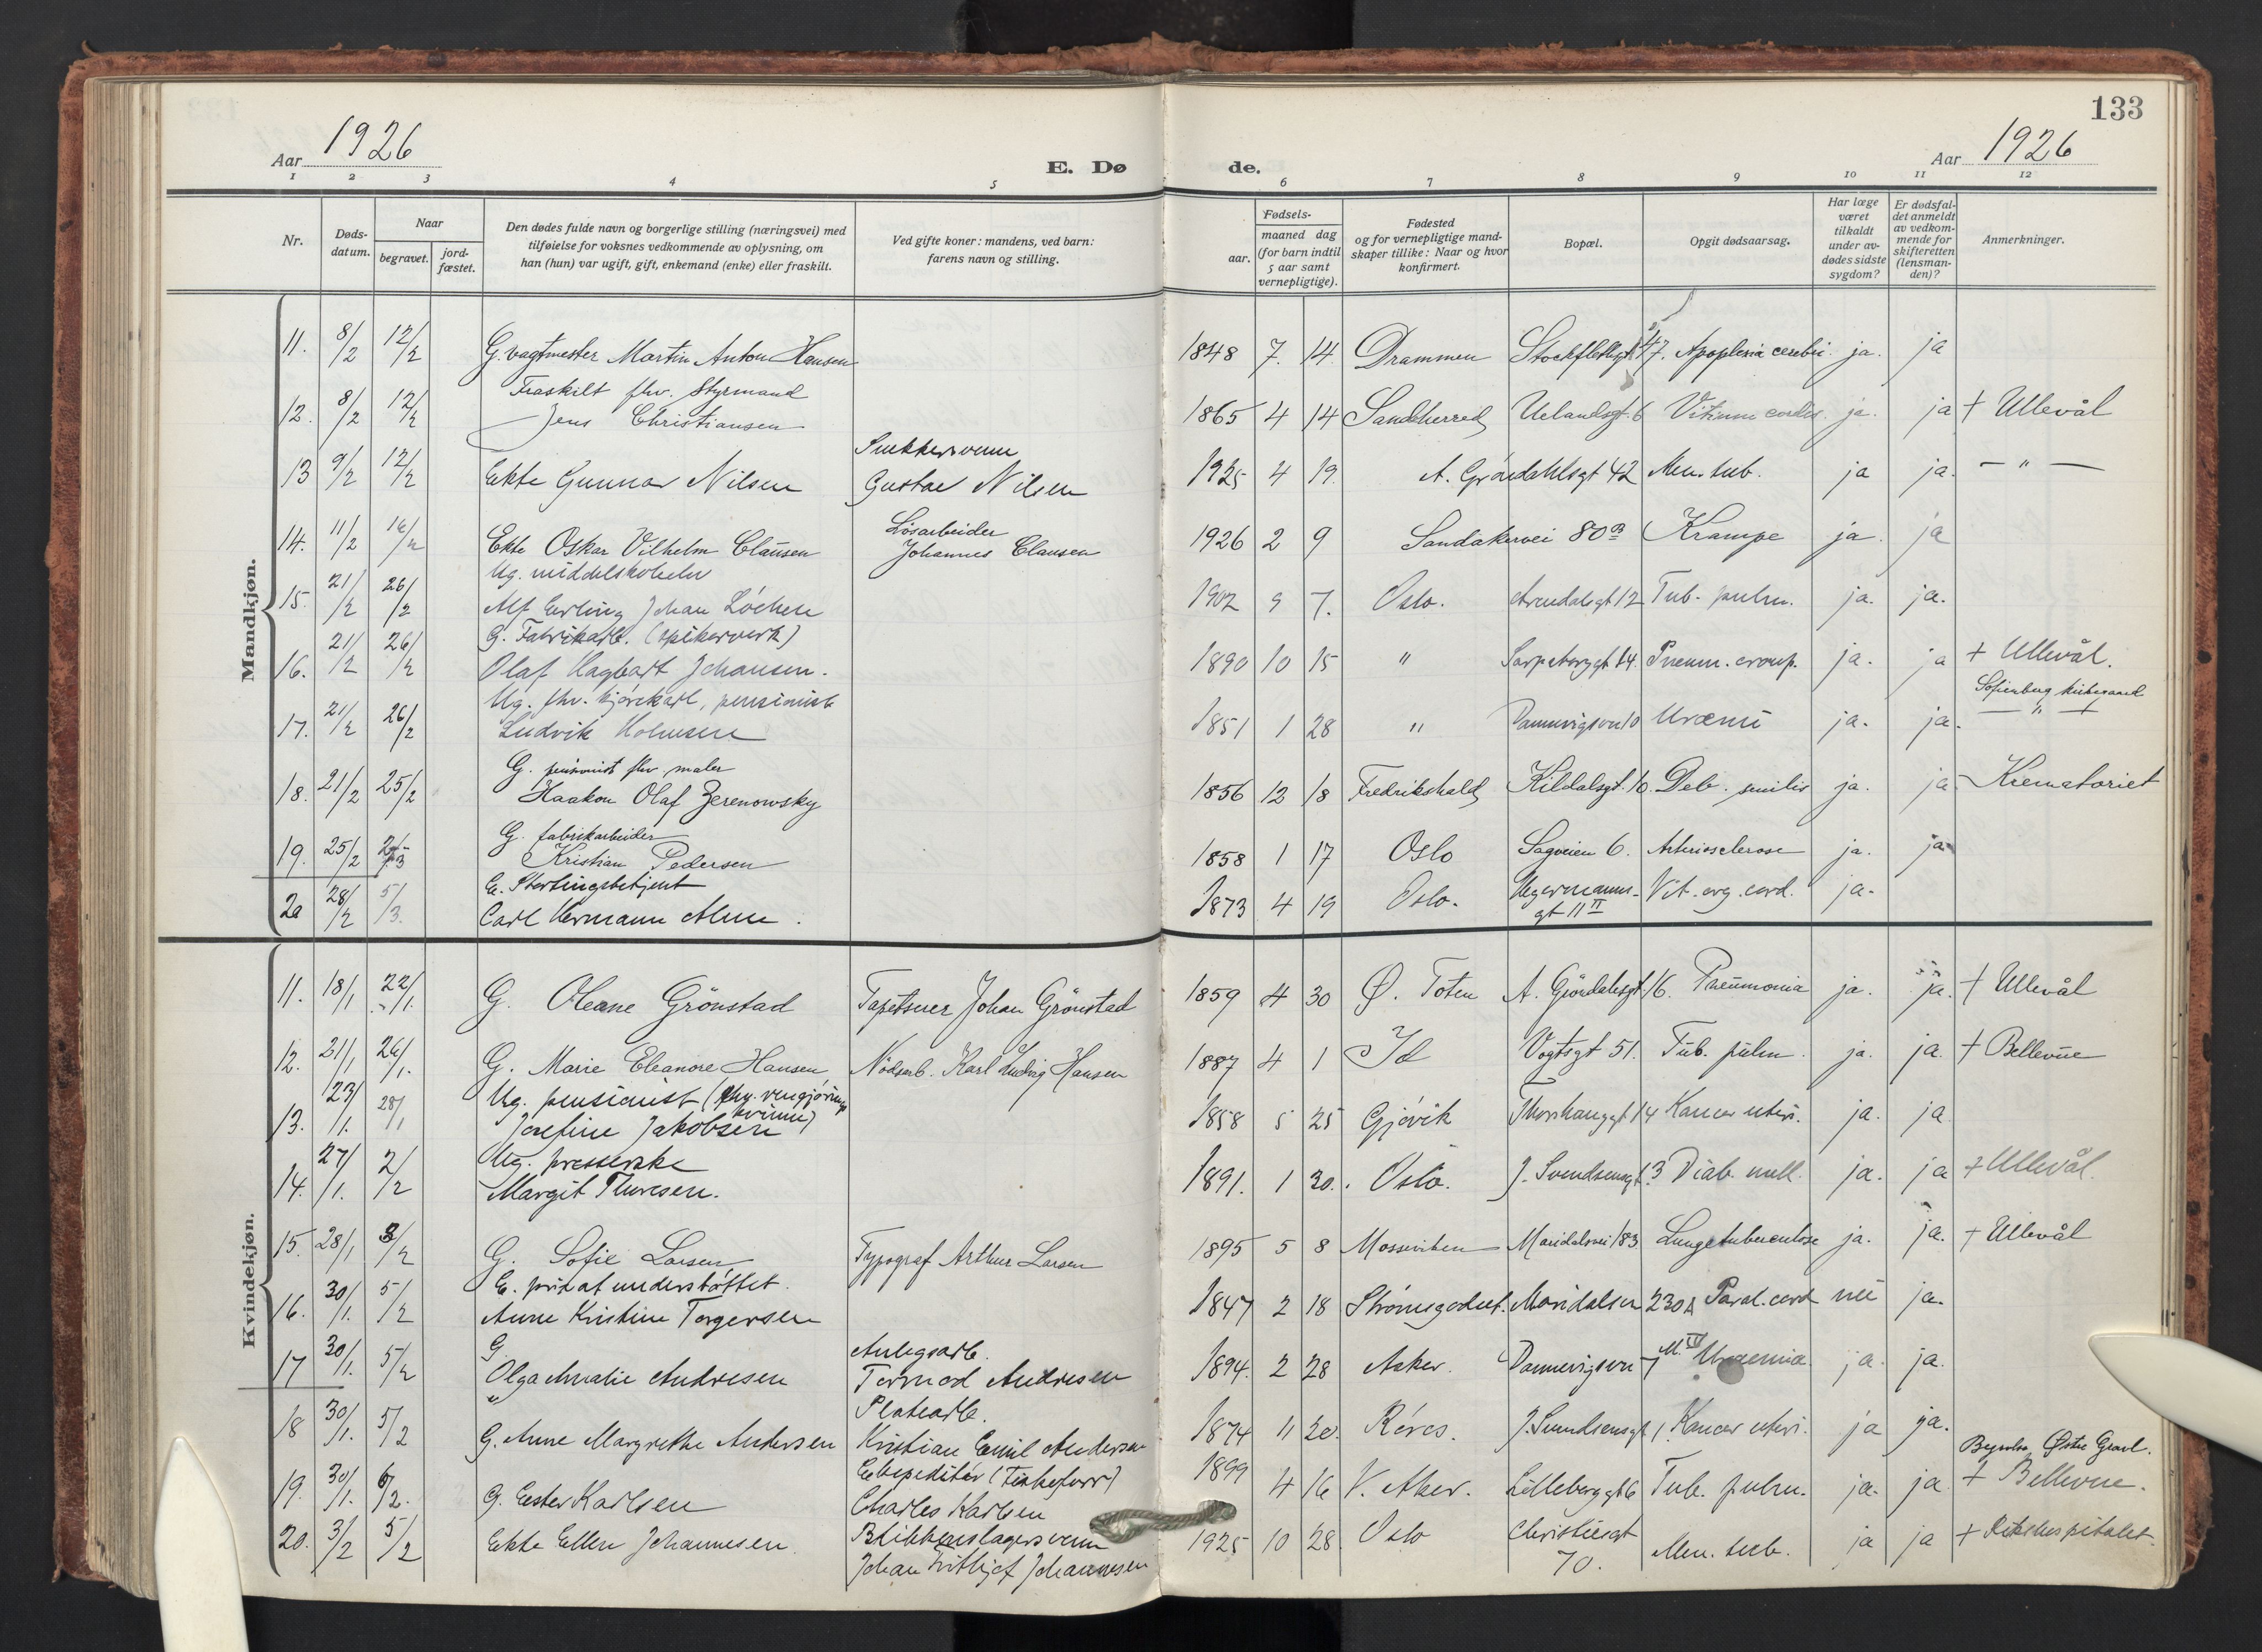 133
Aar 1926
E. Dø
de.
Aar 1926
1 2 3 4 5 6 7 8 9 10 11 12
Nr.
Døds-
datum.
Naar
begravet.
jord-
fæstet.
Den dødes fulde navn og borgerlige stilling (næringsvei) med
tilføielse for voksnes vedkommende av oplysning, om
han (hun) var ugift, gift, enkemand (enke) eller fraskilt.
Ved gifte koner: mandens, ved barn:
farens navn og stilling.
Fødsels-
aar.
maaned dag
(for barn indtil
5 aar samt
vernepligtige).
Fødested
og for vernepligtige mand-
skaper tillike: Naar og hvor
konfirmert.
Bopæl.
Opgit dødsaarsag.
Har læge
været
tilkaldt
under av-
dødes sidste
sygdom?
Er dødsfal-
det anmeldt
av vedkom-
mende for
skifteretten
(lensman-
den)?
Anmerkninger.
Mandkjøn.
11. 8/2 12/2 G. vagtmester Martin Anton Hansen 1848 7. 14. Drammen 47. Apoplexia cerebri. ja. ja
Fraskilt fhv. Styrmand
12. 8/2 12/2 Jens Christiansen 1865 4 14 Sandeherred Uelandsgt. 6 Vitium cordis. ja. ja + Ullevål
Snekkersvenn
13 9/2 12/2 Ekte Gunnar Nilsen Gustav Nilsen 1925 4 19. A. Grøndahlsgt 42 Men. tub. ja ja. — " —
Løsarbeider
14. 11/2 16/2 Ekte Oskar Vilhelm Clausen Johannes Clausen 1926 2 9 Sandakervei 80 B Krampe ja. ja
Ug. middelskoleelev
15. 21/2 26/2 Alf Erling Johan Löchen 1902 9 7. Oslo. Arendalsgt 12 Tub. pulm. ja. ja.
G. Fabrikarb. (spikerverk)
16. 21/2 26/2 Olaf Hagbart Johansen. 1890 10 15 " Sarpsborggt 14. Pneum. croup. ja. ja + Ullevål.
Ug. fhv. kjørekarl, pensionist Sofienberg
17. 21/2 26/2 Ludvik Holmsen 1851 1 28 " Dannevigsvn 10 Uræmi ja. ja. — " —
G. pensionist fhv. maler
18. 21/2 25/2 Haakon Olaf Zerenowsky 1856 12 18 Fredrikshald Kildalsgt. 10. Deb. senilis ja. ja Krematoriet
G. fabrikarbeider
19. 25/2 Kristian Pedersen 1858 1 17 Oslo Sagveien 6. Arteriosclerose ja. ja
E. Stortingsbetjent
20 28/2 5/3. Carl Hermann Alme. 1873 4 19 Oslo. Hegermanns- Vit. org. cord. ja.
gt 11 II
Kvindekjøn.
11. 18/1 22/1. G. Oleane Grönstad Tapetserer Johan Grönstad 1859 4 30 Ø. Toten A. Gröndalsgt. 16. Pneumonia ja. ja. + Ullevål
12. 21/1 26/1. G. Marie Eleanore Hansen Nödsarb. Karl Ludvig Hansen 1887 4 1 Id Vogtsgt 51. Tub. pulm. ja. ja. + Bellevue
Ug. pensionist (fhv. rengjørings
kvinne)
13. 23/1. 28/1 Josefine Jakobsen 1858 5 25 Gjøvik Thorshauggt 14 Kancer uteri. ja. ja
Ug. presserske
14. 27/1. 2/2 Margit Thoresen. 1891. 1 30. Oslo. J. Svendsensgt 3 Diab. mell. ja. ja + Ullevål.
15. 28/1 3/2 G. Sofie Larsen Typograf Arthur Larsen 1895 5 8 Mosseviken Maridalsvei 183 Lungetuberculose ja. ja. + Ullevål
E. privat understøttet.
16. 30/1. 5/2 Anne Kristine Torgersen 1847 2 18 Strømsgodset. Maridalsvn 230 A Paral. cord nei ja.
G. Anlegsarb.
17 30/1. 5/2 Olga Amalie Andresen Tormod Andresen 1894. 2 28 Asker. Dannevigsvn 7 Uræmia ja. ja.
Platearb.
18 30/1. 5/2 G. Anne Margrethe Andersen Kristian Emil Andersen 1874 11 20. Röros. J. Svendsensgt 1. Kancer uteri. ja ja.
Ekspeditør Østre Gravl.
19. 30/1. 6/2. G. Ester Karlsen Charles Karlsen 1899 4 16 V. Aker. Lilleborggt 6 Tub. pulm. ja. ja + Bellevue.
Blikkenslagersvenn
20. 3/2 5/2 Ekte Ellen Johannesen. Johan Fritjof Johannesen 1925 10 28 Oslo Christiesgt 70. Men. tub. ja ja + Rikshospitalet.